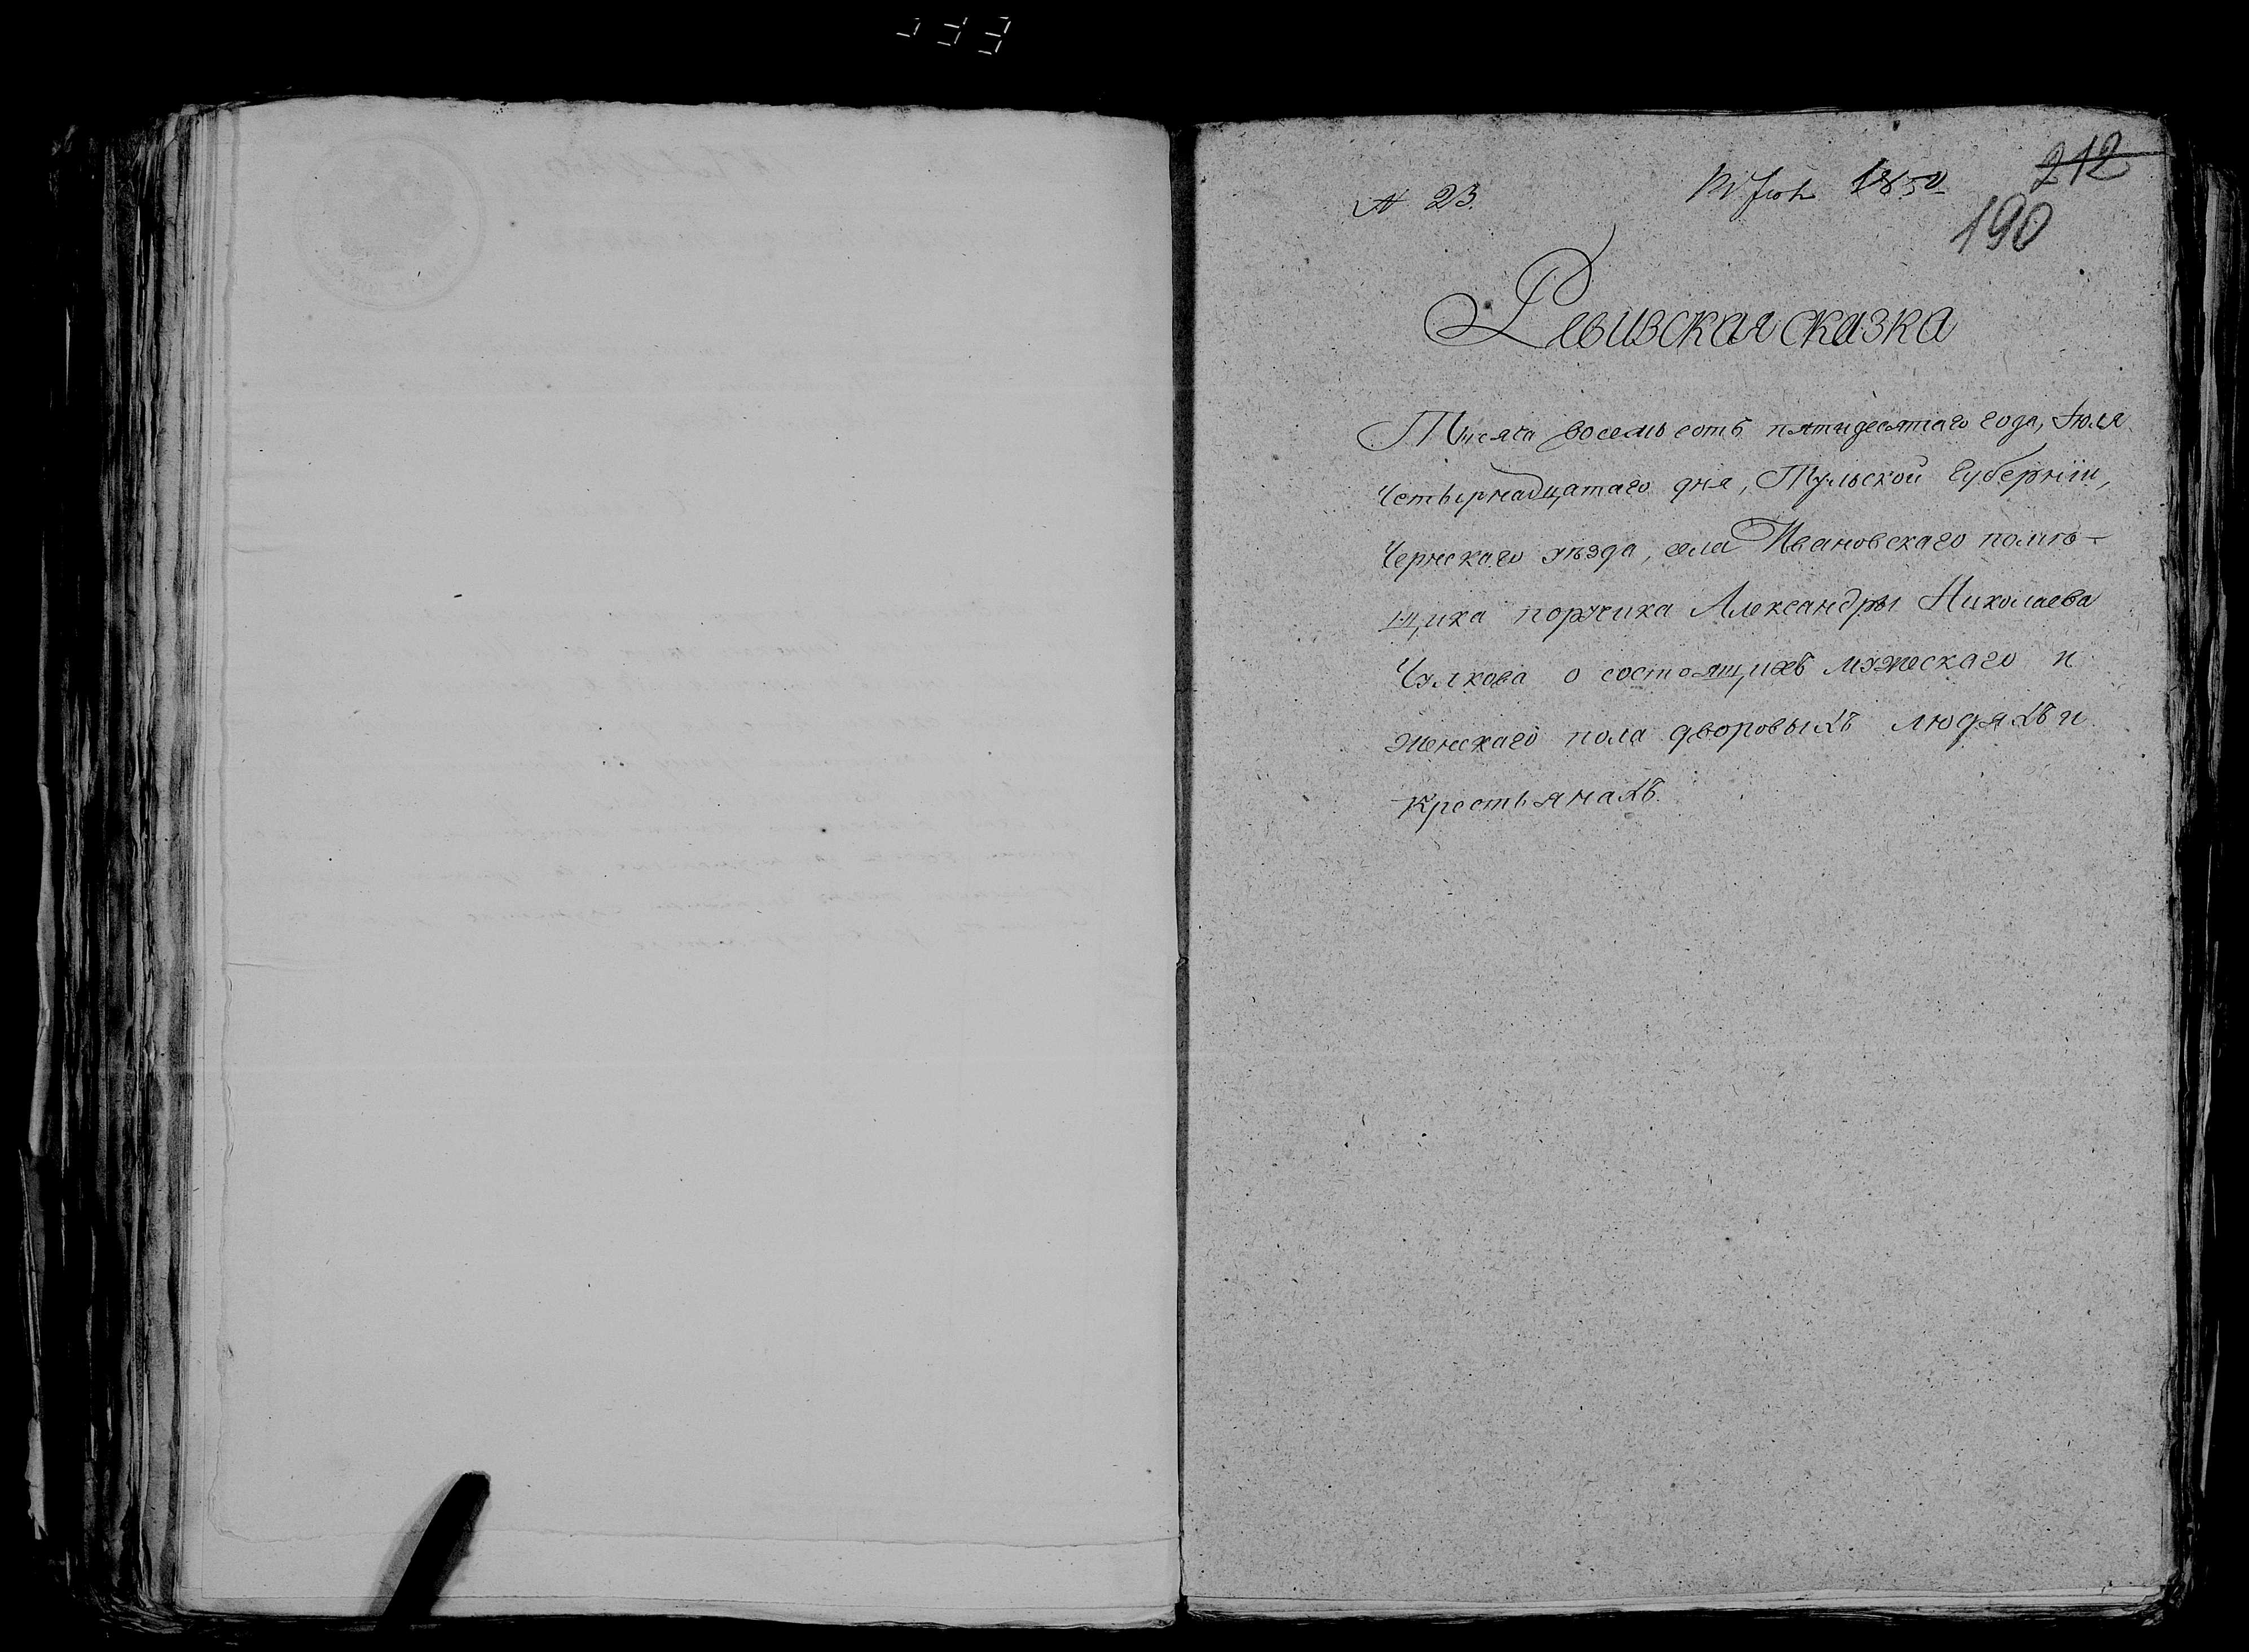 212
№ 23. 14 Июля 1850
190
Ревизская сказка
Тысяча восемь сотъ пятидесятаго года, Июля
Четырнадцатаго дня, Тульской Губерніи,
Чернскаго уѣзда, села Ивановскаго помѣ-
щика поручика Александры Николаева
Чулкова о состоящихъ мужескаго и
женскаго пола дворовыхъ людяхъ и
крестьянахъ.